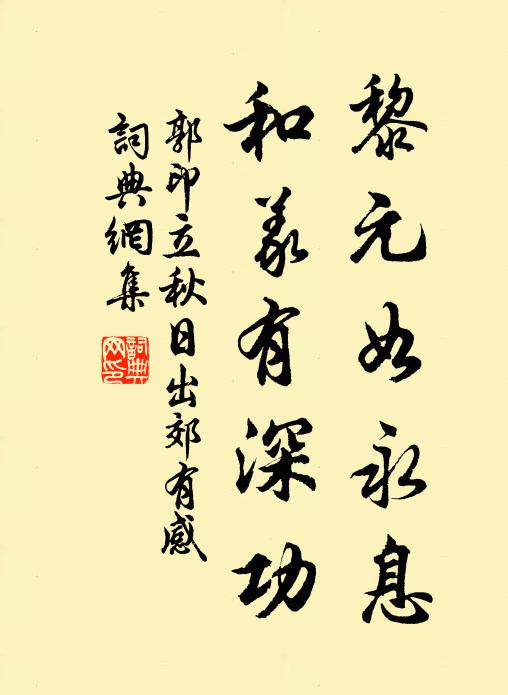 黎元如永息
和義有深功
郭印立秋日出郊有感
詞典網集
詞典
网印